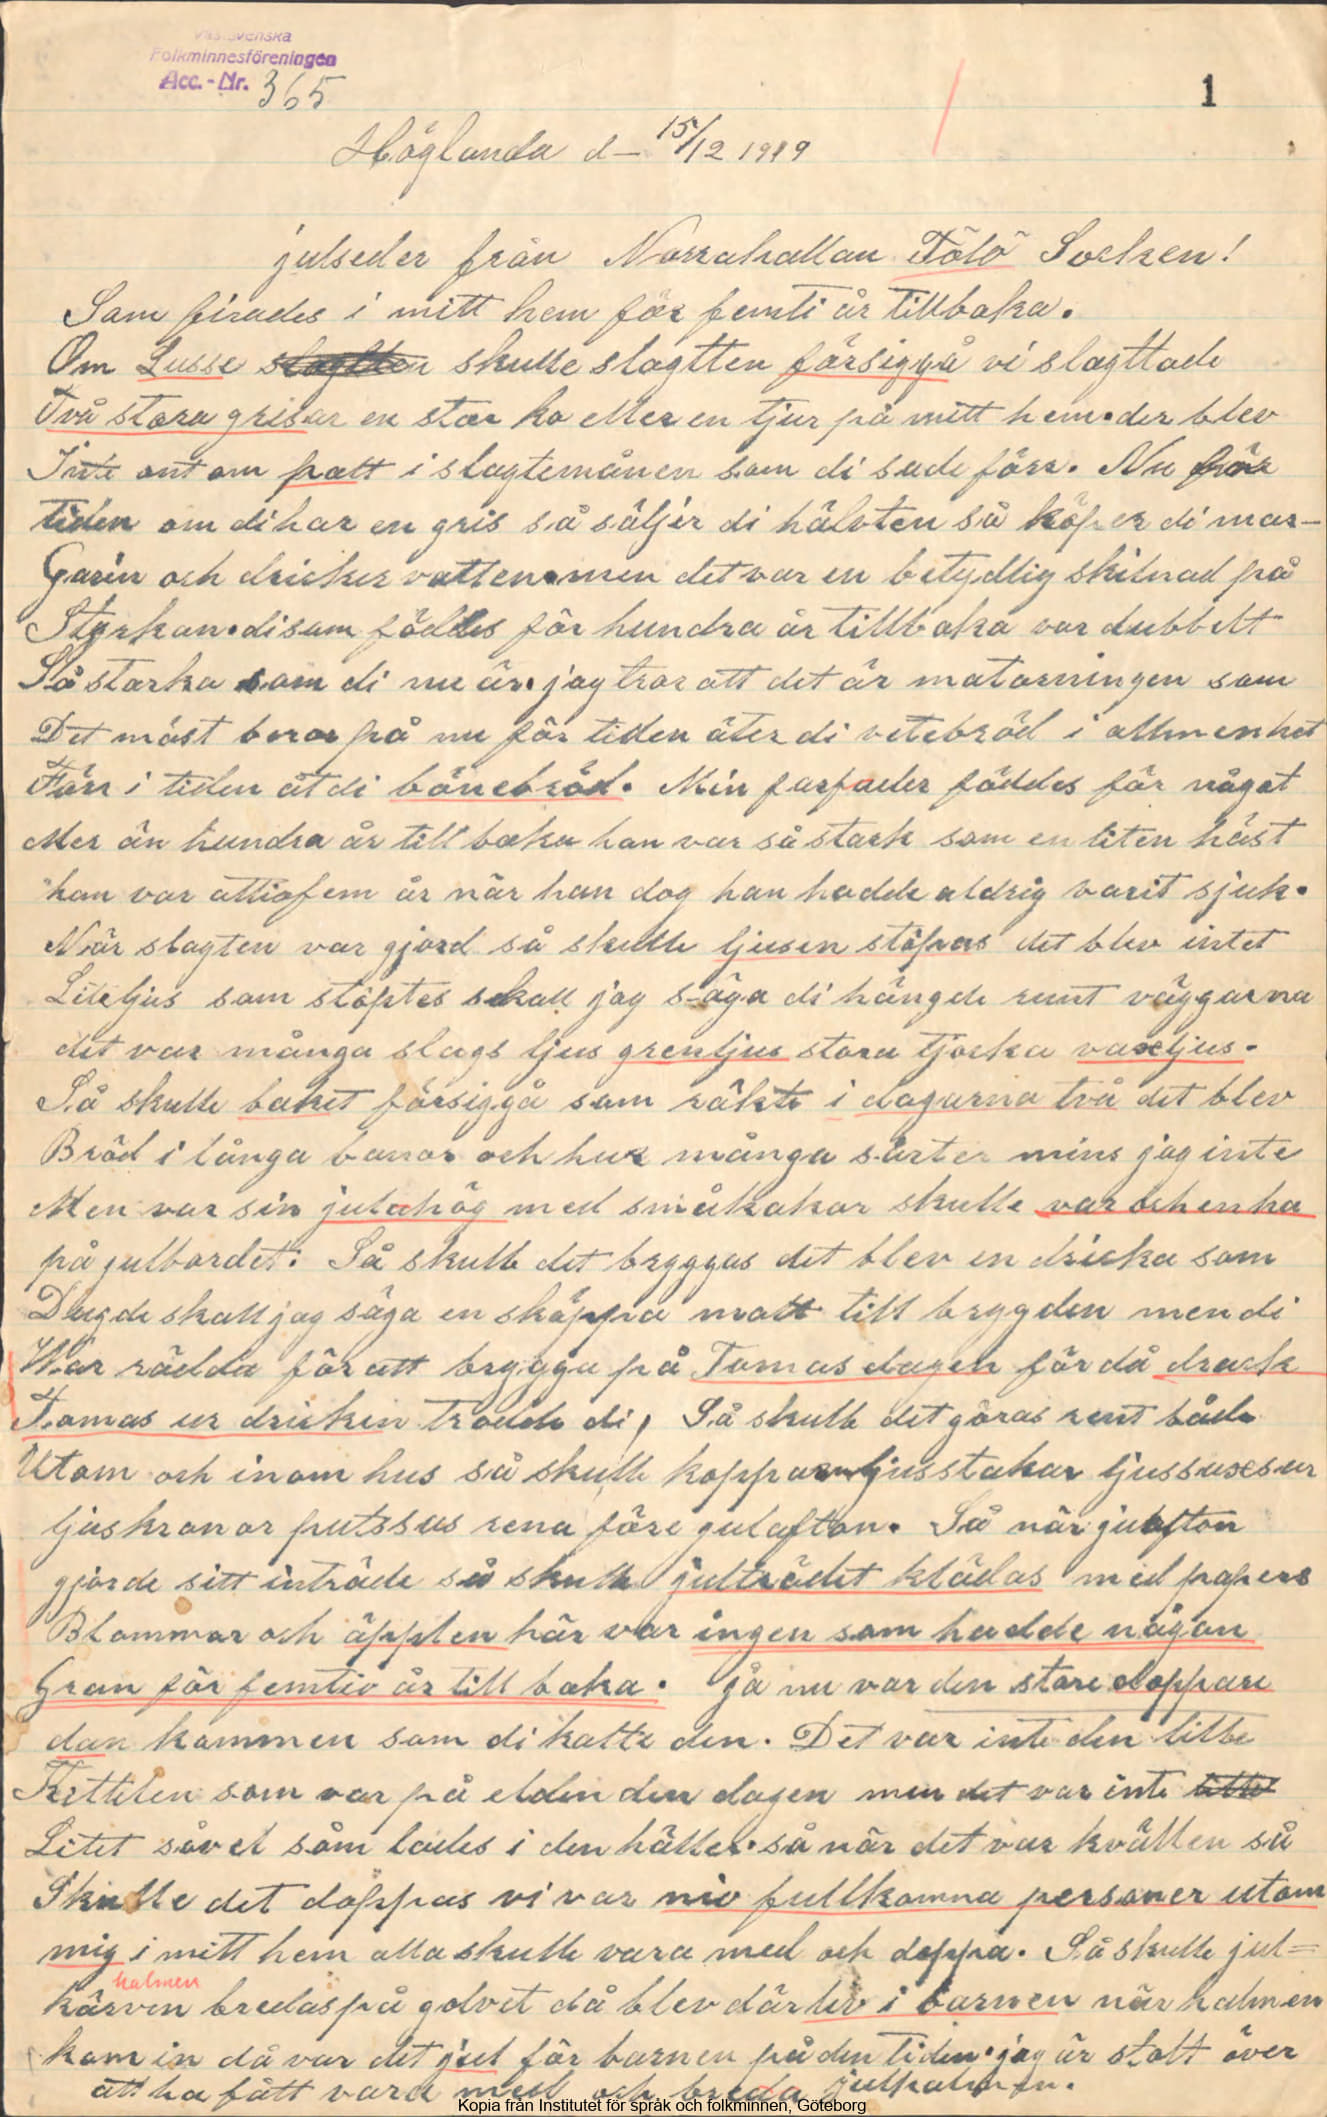 Västsvenska
Folkminnesföreningen
Acc.-Nr. 365
1
Höglanda d– 15/12 1919
julseder från Norrahallan Fölö Socken!
Som firades i mitt hem för femti år tillbaka.
Om Lusse slagtten skulle slagtten försiggå vi slagttade
Två stora grisar en stor ko eller en tjur på mitt hem. der blev
Inte ont om patt i slagtemånen som di sade förr. Nu för
tiden om di har en gris så säljer di hälvten så köper di mar-
Garin och dricker vatten. men det var en betydlig skilnad på
Styrkan. di som föddes för hundra år tillbaka var dubbelt
Så starka som di nu är. jag tror att det är matorningen som
Det mäst beror på nu för tiden äter di vetebröd i allmenhet
Förr i tiden åt di bönebröd. Min farfader föddes för något
Mer än hundra år tillbaka han var så stark som en liten häst
han var åttiofem år när han dog han hadde aldrig varit sjuk.
När slagten var gjord så skulle ljusen stöpas det blev intet
Lite ljus som stöptes skall jag säga di hängde runt väggarna
det var många slags ljus grenljus stora tjocka vaxljus.
Så skulle baket försiggå som räkte i dagarna två det blev
Bröd i långa banor och hur många sårter mins jag inte
Men var sin julahög med småkakor skulle var och en ha
på julbordet. Så skulle det bryggas det blev en dricka som
Dugde skall jag säga en sköppa malt till brygden men di
War rädda för att brygga på Tomasdagen för då drack
Tomas ur dricken trodde di, Så skulle det göras rent både
Utom och inom hus så skulle kopparn ljusstakar ljussaxsar
ljuskronor putssas rena före julafton. Så när julafton
gjorde sitt inträde så skulle julträdet klädas med papers
Blommor och äpplen här var ingen som hadde någon
Gran för femtio år tillbaka. Jå nu var den store doppare
dan kommen som di kalte den. Det var inte den lille
Kittelen som var på elden den dagen men det var inte lille
Litet såvel som lades i den häller. så när det var kvällen så
Skulle det doppas vi var nio fullkomna personer utom
mig i mitt hem alla skulle vara med och doppa. Så skulle jul=
halmen
kärven bredas på golvet då blev där liv i barnen när halmen
kom in då var det jul för barnen på den tiden. jag är stolt över
att ha fått vara med och breda julhalmen.
Kopia från Institutet för språk och folkminnen, Göteborg